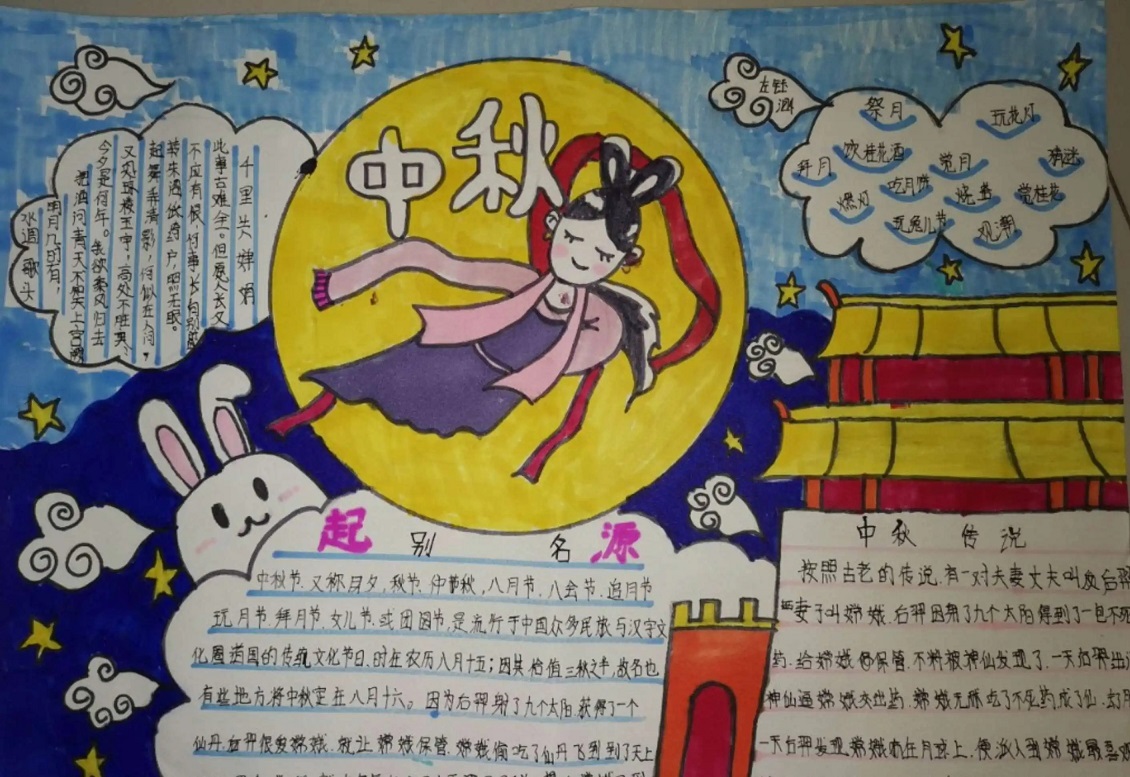 中秋
千里共婵娟
此事古难全。但愿人长久
不应有恨,何事长向别时
转朱阁低绮户,照无眠。
起舞弄清影,何似在人间,
又恐琼楼玉宇,高处不胜寒,
今夕是何年。我欲乘风归去
把酒问青天不知天上宫阙
明月几时有,
水调歌头
祭月
玩花灯
猜谜
拜月
饮桂花酒
赏月
吃月饼
烧塔
赏桂花
燃灯
玩兔儿节
观潮
起 别 名 源
中秋节.又称月夕,秋节.仲秋,八月节.八会节.追月节
玩月节.拜月节.女儿节.或团圆节.是流行于中国众多民族与汉字文
化圈诸国的传统文化节日.时在农历八月十五;因其恰值三秋之半,故名也
有些地方将中秋定在八月十六。因为后羿射了九个太阳获得了一个
仙丹.后羿很爱嫦娥.就让嫦娥保管.嫦娥偷吃了仙丹飞到到了天上
中秋 传说
按照古老的传说.有一对夫妻丈夫叫后羿
妻子叫嫦娥.后羿因射了九个太阳得到了一包不死
药.给嫦娥保管.不料被神仙发现了.一天后羿出
神仙逼嫦娥交出药.嫦娥无琢吃了不死药成了仙.
一天后羿发现.嫦娥在月球上.便派人到嫦娥最喜欢